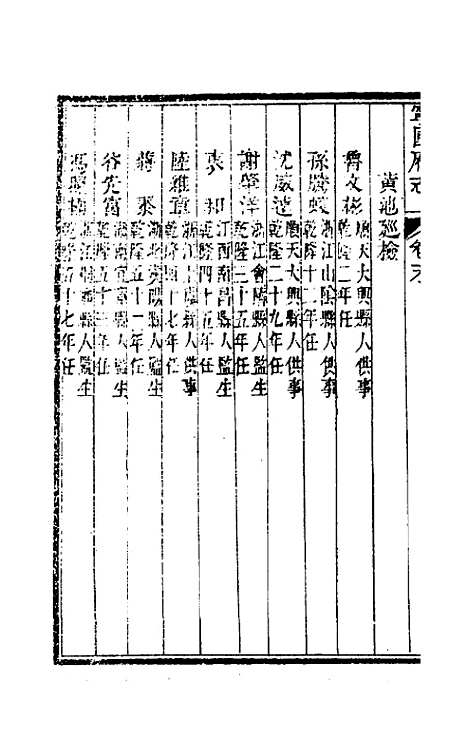 寧國府志 卷末
黃池巡檢
費文彬 順天大興縣人供事 乾隆二年任
孫騰蛟 浙江山陰縣人供事 乾隆十二年任
沈威遠 順天大興縣人供事 乾隆二十九年任
謝肇洋 浙江會稽縣人監生 乾隆三十五年任
袁和 江西南昌縣人監生 乾隆四十五年任
陸維章 浙江 縣人供事 乾隆四十七年任
蔣泰 湖北 縣人監生 乾隆五十一年任
谷先富 湖南 縣人監生 乾隆五十三年任
馮 浙江 縣人監生 乾隆五十七年任